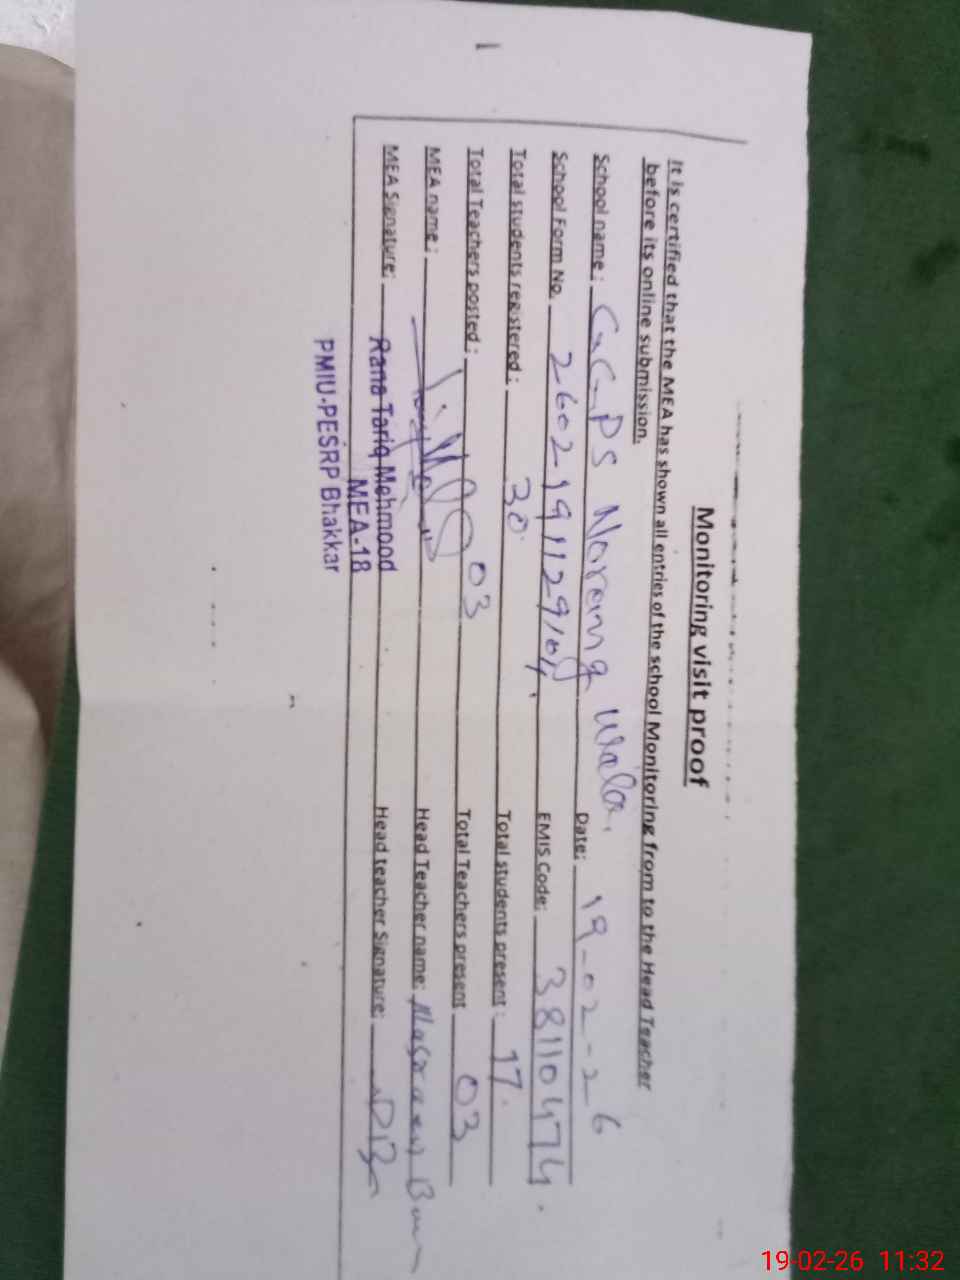 Monitoring visit proof
It is certified that the MEA has shown all entries of the school Monitoring from to the Head Teacher
before its online submission.
School name: GGPS Norang Wala. Date: 19-02-26
School Form No. 2602191129104. EMIS Code: 38110474.
Total students registered: 30. Total students present: 17.
Total Teachers posted: 03 Total Teachers present 03
MEA name: Head Teacher name:
MEA Signature: Rana Tariq Mehmood Head teacher Signature:
MEA-18
PMIU-PESRP Bhakkar
19-02-26 11:32